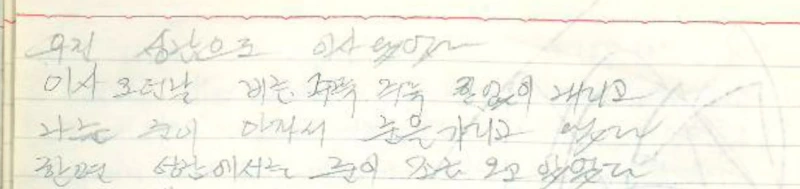 우린 성남으로 이사 왔었다
이사 오던날 비는 주룩 주룩 끝없이 내리고
나는 눈이 아파서 눈을 가리고 있었다
한편 성남에서는 눈이 오고 있었다